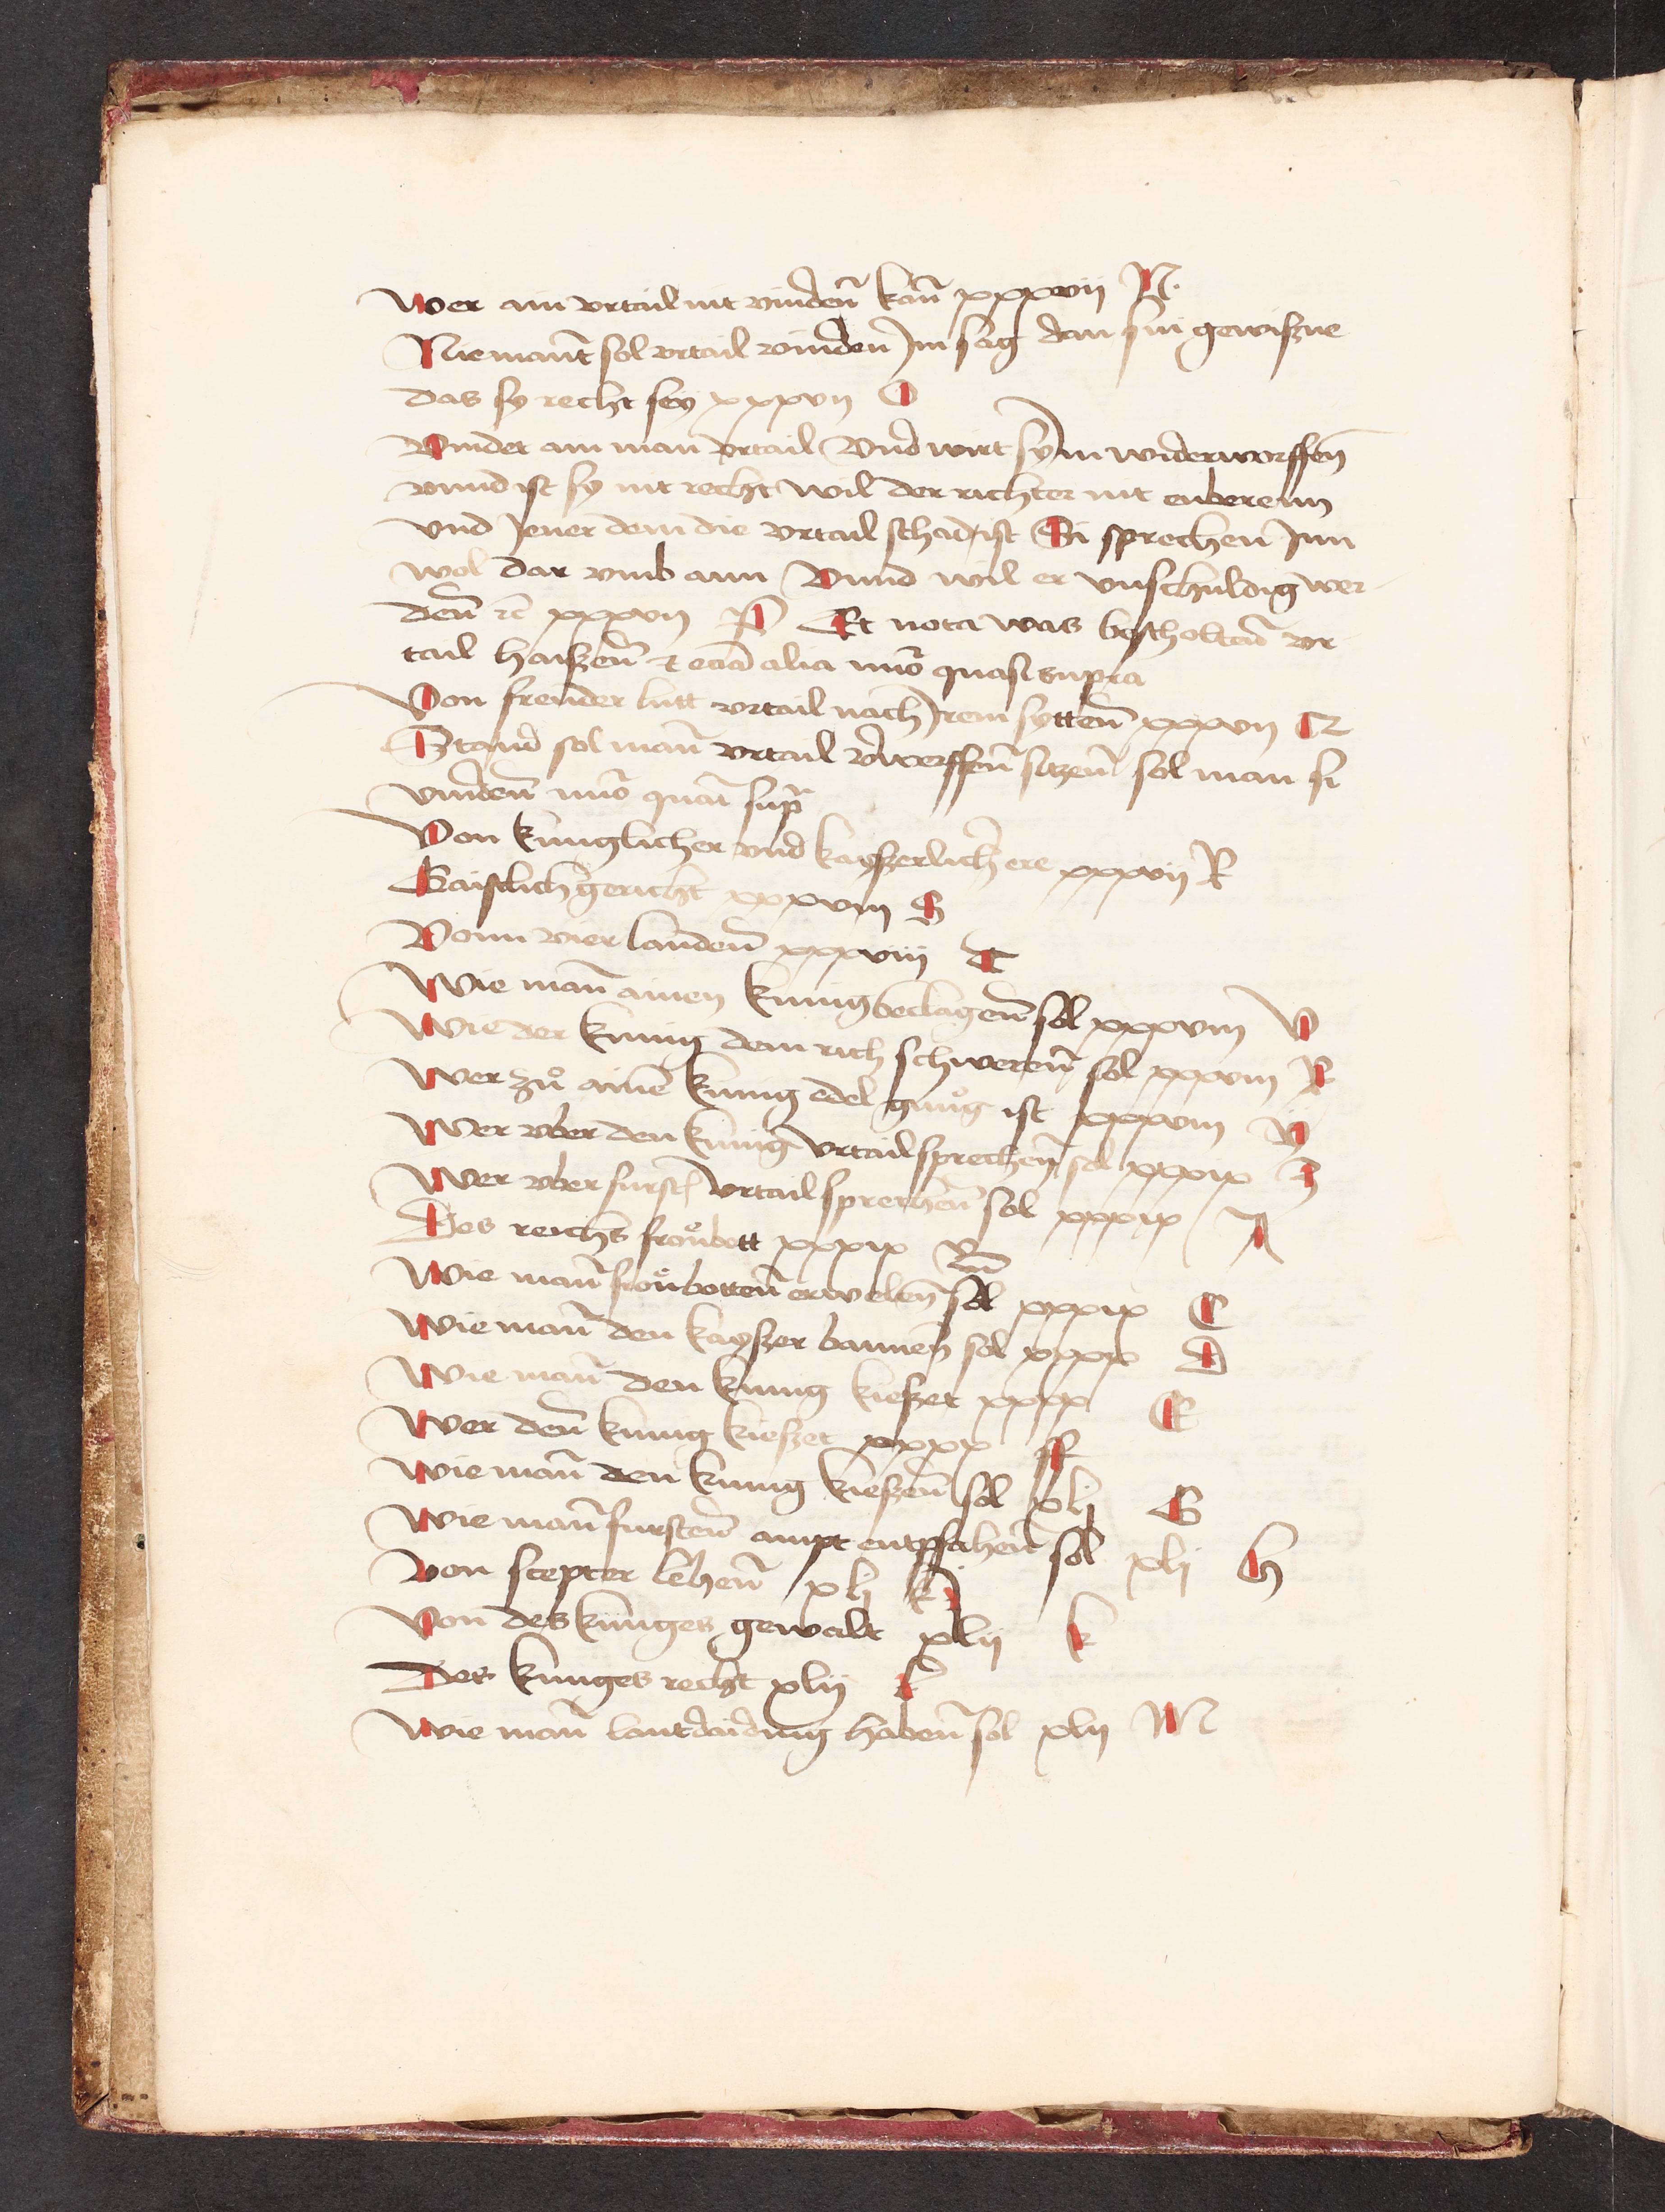 Wer ain vrtail nit vindenn̄ kan̄ xxxvij N.
Niemant sol vrtail vinden Jm sag dan sin gewiszne
das sy recht sey xxxvij O
Vindet ain man vrtail Vnd wirt sy im widerworffen̄
vnnd ist sy nit recht wil der richter nit enberenn
vnd Jener dem die vrtail schad ist Si sprechen Jnn
wol dar vmb ann Vnnd wil er vnschuldig wer-
den̄ rc̄ xxxvij P Et nota was bescholten̄ vr-
tail haiszen̄ et eciā alia nūo quasi supra
Von fremder lutt vrtail nach Jrem sytten̄ xxxvij Q
Stand sol man̄ vrtail v̄werffen̄ sitzen̄ sol man si
vinden̄ nūo quasi supra
Von kunglicher vnd kayszerlicher ere xxxvij R
Gaistlich gericht xxxviij S
Vonn vier landen̄ xxxviij T
Wie man̄ ainen kunig beclagen̄ sol xxxviij V
Wie der kunig dem rich schweren̄ sol xxxviij X
Wer zů ainē kunig edel gnůg ist xxxviij Y
Wer vber den kunig vrtail sprechen̄ sol xxxix Z
Wer vber furstē vrtail sprechen̄ sol xxxix A
Des reichs fronbott xxxix B
Wie man̄ fronbotten̄ erwelen̄ sol xxxix C
Wie man̄ den kayszer bannen̄ sol xxxix D
Wie man̄ den kunig kieszet xxxx E
Wer den̄ kunig kieszet xxxx F
Wie man̄ den kunig kieszen̄ sol xlj G
Wie man̄ fursten̄ ampt entpfahen̄ sol xlj H
Von scepter lehen̄ xlj J
Von des kunges gewalt xlij k
Des kunges recht xlij L
Wie man̄ lantdaiding haben̄ sol xlij M